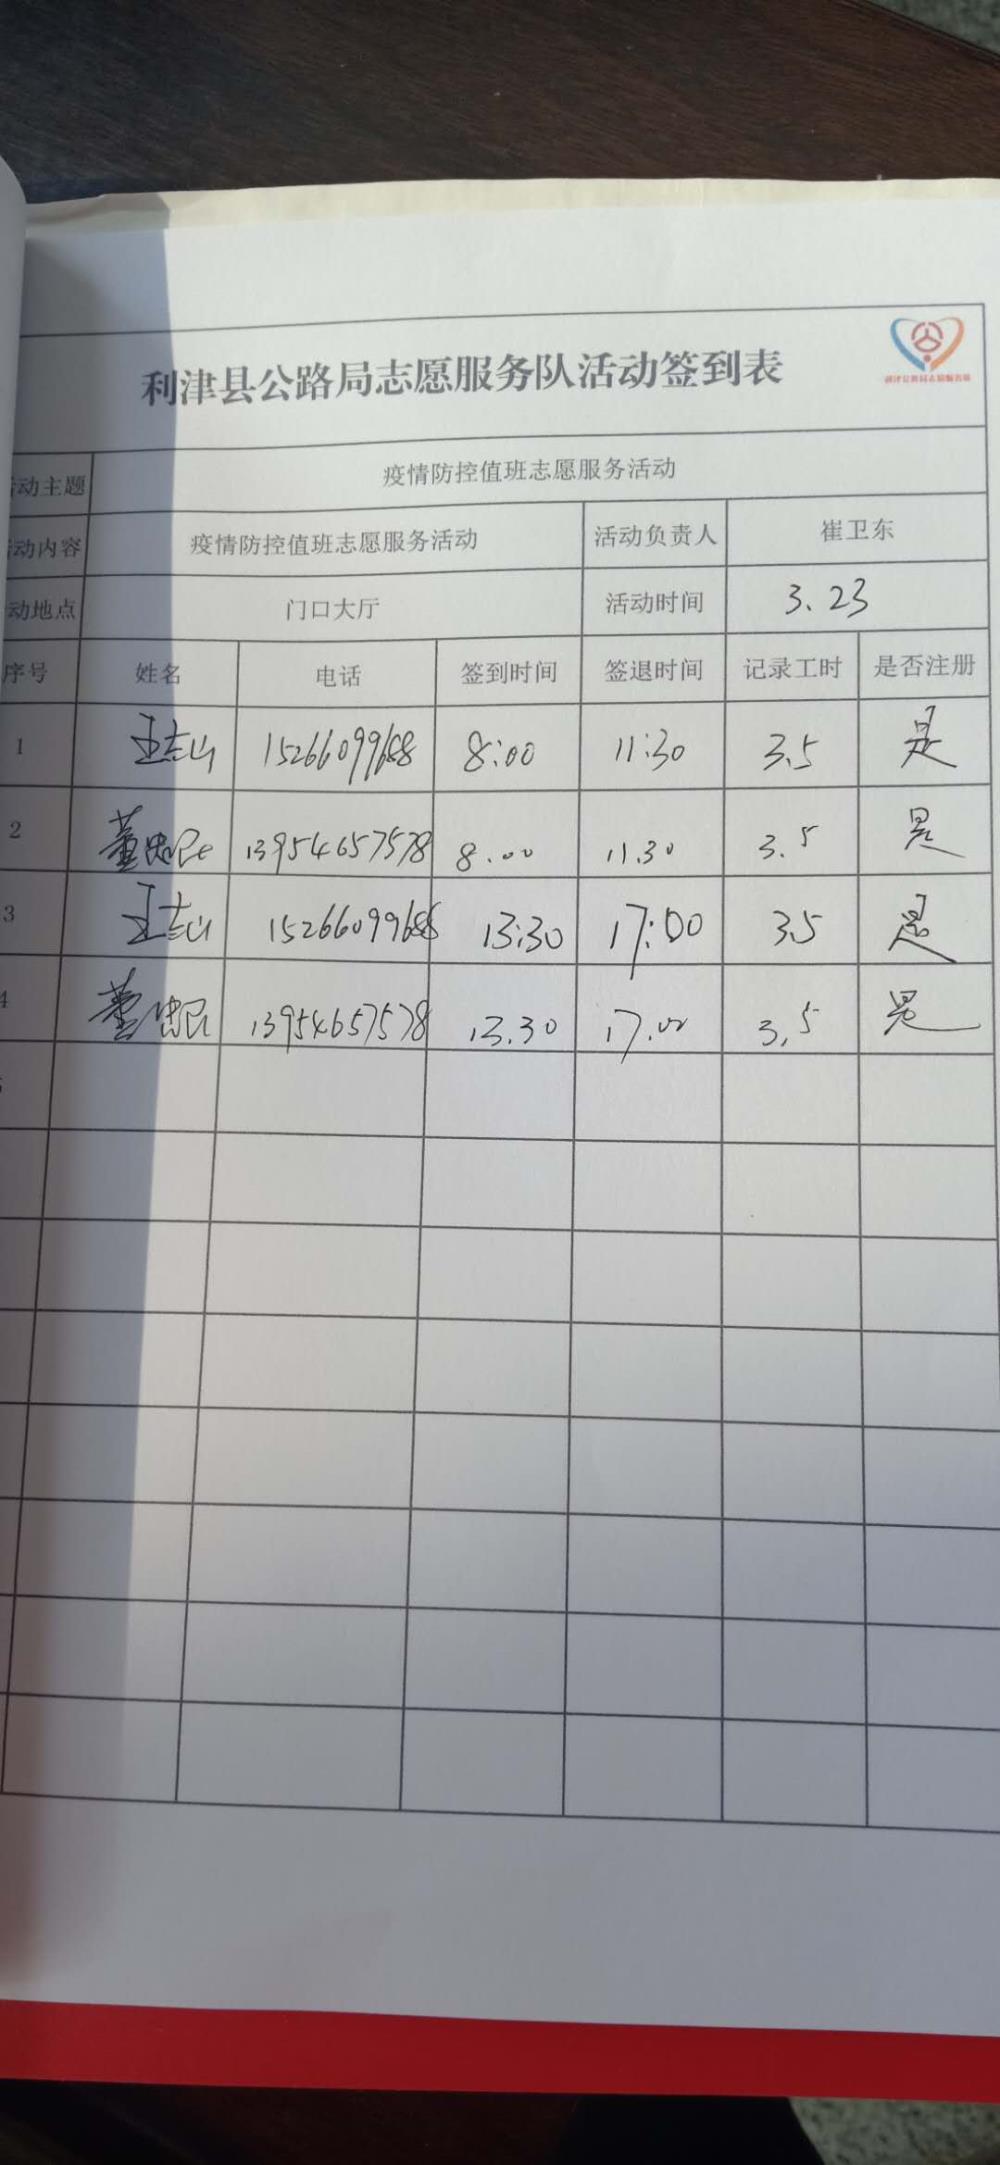 利津县公路局志愿服务队活动签到表
利津县公路局志愿服务队
活动主题 疫情防控值班志愿服务活动
活动内容 疫情防控值班志愿服务活动 活动负责人 崔卫东
活动地点 门口大厅 活动时间 3.23
序号 姓名 电话 签到时间 签退时间 记录工时 是否注册
1 王志山 15266099688 8:00 11:30 3.5 是
2 董忠民 13954657578 8.00 11.30 3.5 是
3 王志山 15266099688 13:30 17:00 3.5 是
4 董忠民 13954657578 13.30 17.00 3.5 是